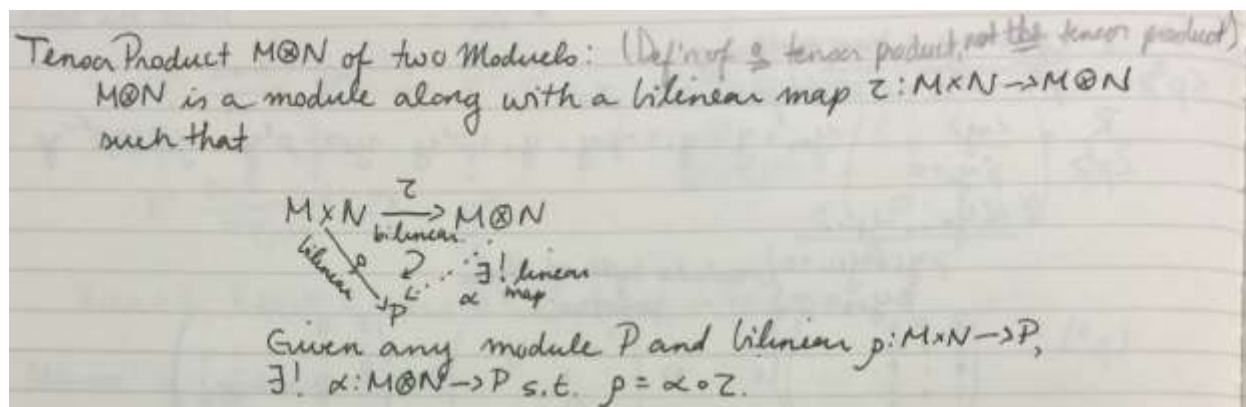 Tensor Product M⊗N of two Moduels: (Def'n of a tensor product, not the tensor product)
M⊗N is a module along with a bilinear map τ: M×N → M⊗N
such that
M×N →τ M⊗N
bilinear
bilinear ρ ∃! linear
α map
P
Given any module P and bilinear ρ: M×N → P,
∃! α: M⊗N → P s.t. ρ = α∘τ.